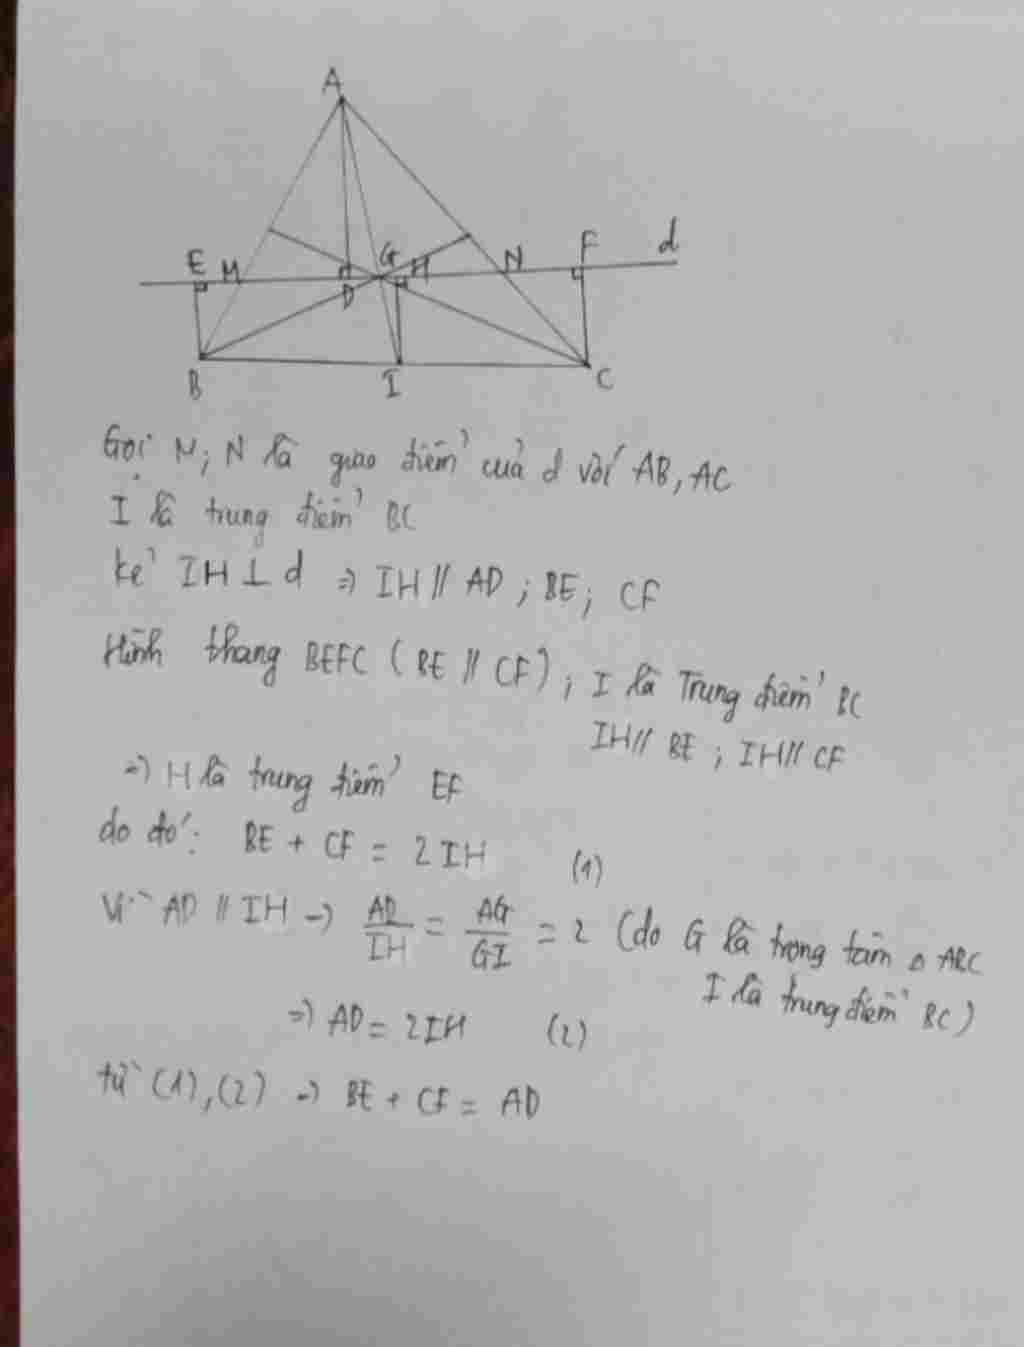 A
E M D G H N F d
B I C
Gọi M; N là giao điểm của d với AB, AC
I là trung điểm BC
kẻ IH ⊥ d => IH // AD ; BE ; CF
Hình thang BEFC ( BE // CF ) ; I là Trung điểm BC
IH // BE ; IH // CF
=> H là trung điểm EF
do đó: BE + CF = 2IH (1)
Vì AD // IH -> AD/IH = AG/GI = 2 (do G là trọng tâm △ ABC
I là trung điểm BC)
=> AD = 2IH (2)
từ (1), (2) -> BE + CF = AD